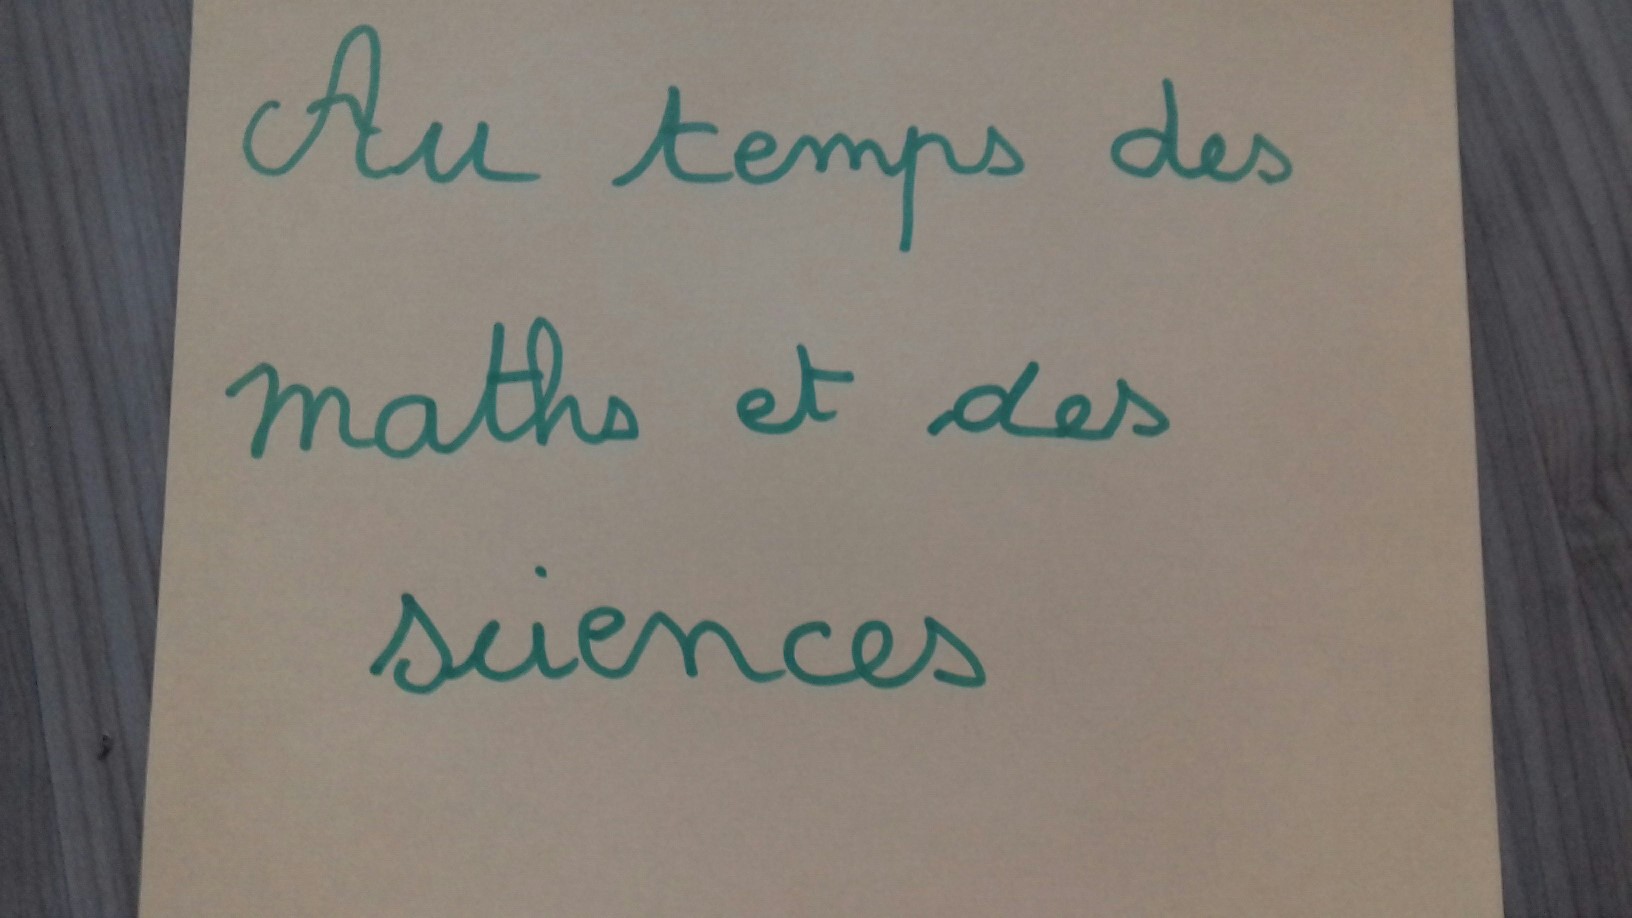 Au temps des
maths et des
sciences